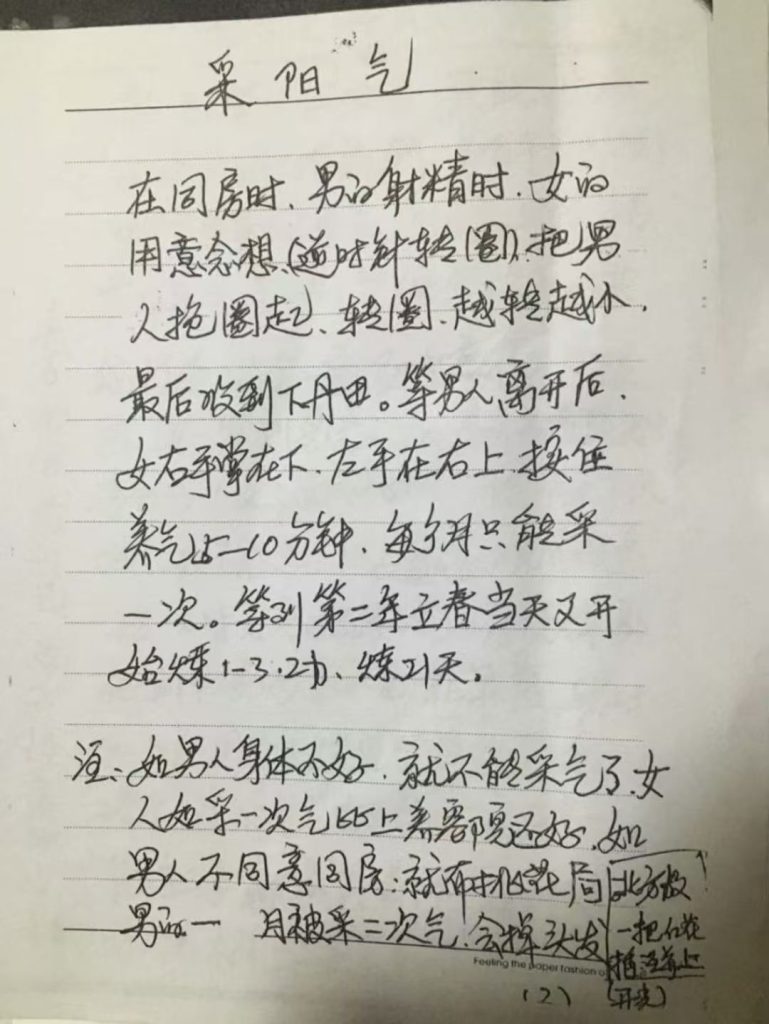 采阳气
在同房时、男的射精时、女的
用意念想、(逆时针转圈)、把男
人抱圈起、转圈、越转越小、
最后收到下丹田。等男人离开后、
女右手掌在下、左手在右上、按住
养气5—10分钟、每个月只能采
一次。等到第二年立春当天又开
始炼1-3.2功、炼21天。
注:如男人身体不好、就不能采气了、女
人如采一次气比上美容院还好、如
男人不同意同房:就布桃花局
男的一 月被采二次气、会掉头发
北方放
一把
上
Feeling the paper fashion o
(2)